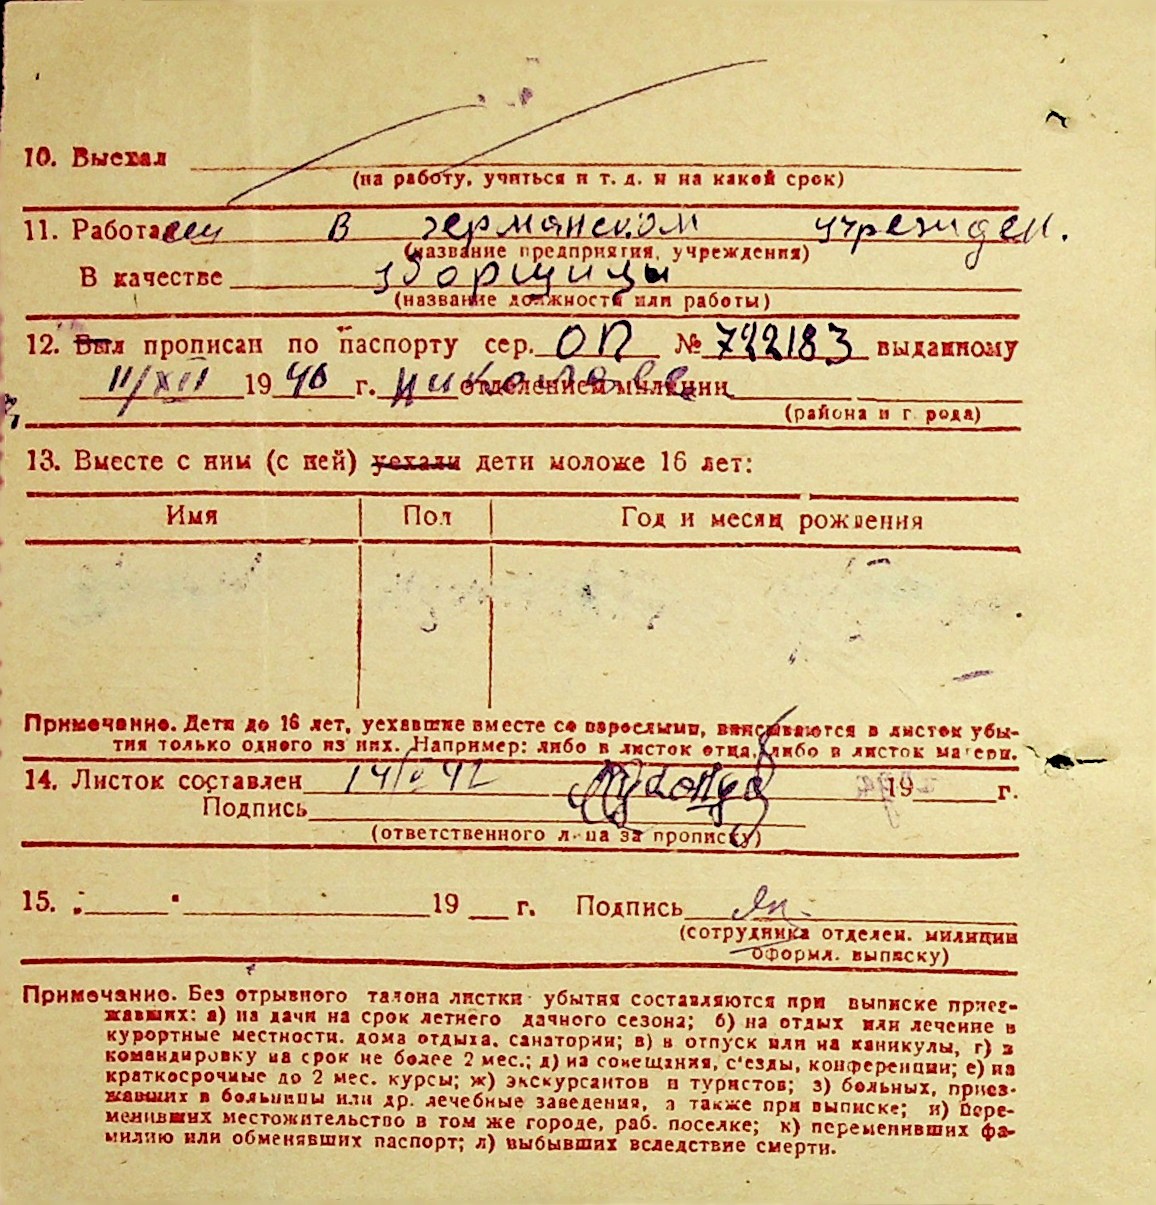 10. Выехал
(на работу, учиться и т. д. и на какой срок)
11. Работает в германском учрежден.
(название предприятия, учреждения)
В качестве уборщицы
(название должности или работы)
12. Был прописан по паспорту сер. ОП № 722183 выданному
11/XII 1940 г. отделением милиции
(района и города)
13. Вместе с ним (с ней) уехали дети моложе 16 лет:
Имя Пол Год и месяц рождения
Примечание. Дети до 16 лет, уехавшие вместе со взрослыми, вписываются в листок убы-
тия только одного из них. Например: либо в листок отца, либо в листок матери.
14. Листок составлен 14/V 42 19 г.
Подпись
(ответственного лица за прописку)
15. „ " 19 г. Подпись
(сотрудника отделен. милиции
оформл. выписку)
Примечание. Без отрывного талона листки убытия составляются при выписке приез-
жавших: а) на дачи на срок летнего дачного сезона; б) на отдых или лечение в
курортные местности, дома отдыха, санатории; в) в отпуск или на каникулы, г) в
командировку на срок не более 2 мес.; д) на совещания, с'езды, конференции; е) на
краткосрочные до 2 мес. курсы; ж) экскурсантов и туристов; з) больных, приез-
жавших в больницы или др. лечебные заведения, а также при выписке; и) пере-
менивших местожительство в том же городе, раб. поселке; к) переменивших фа-
милию или обменявших паспорт; л) выбывших вследствие смерти.